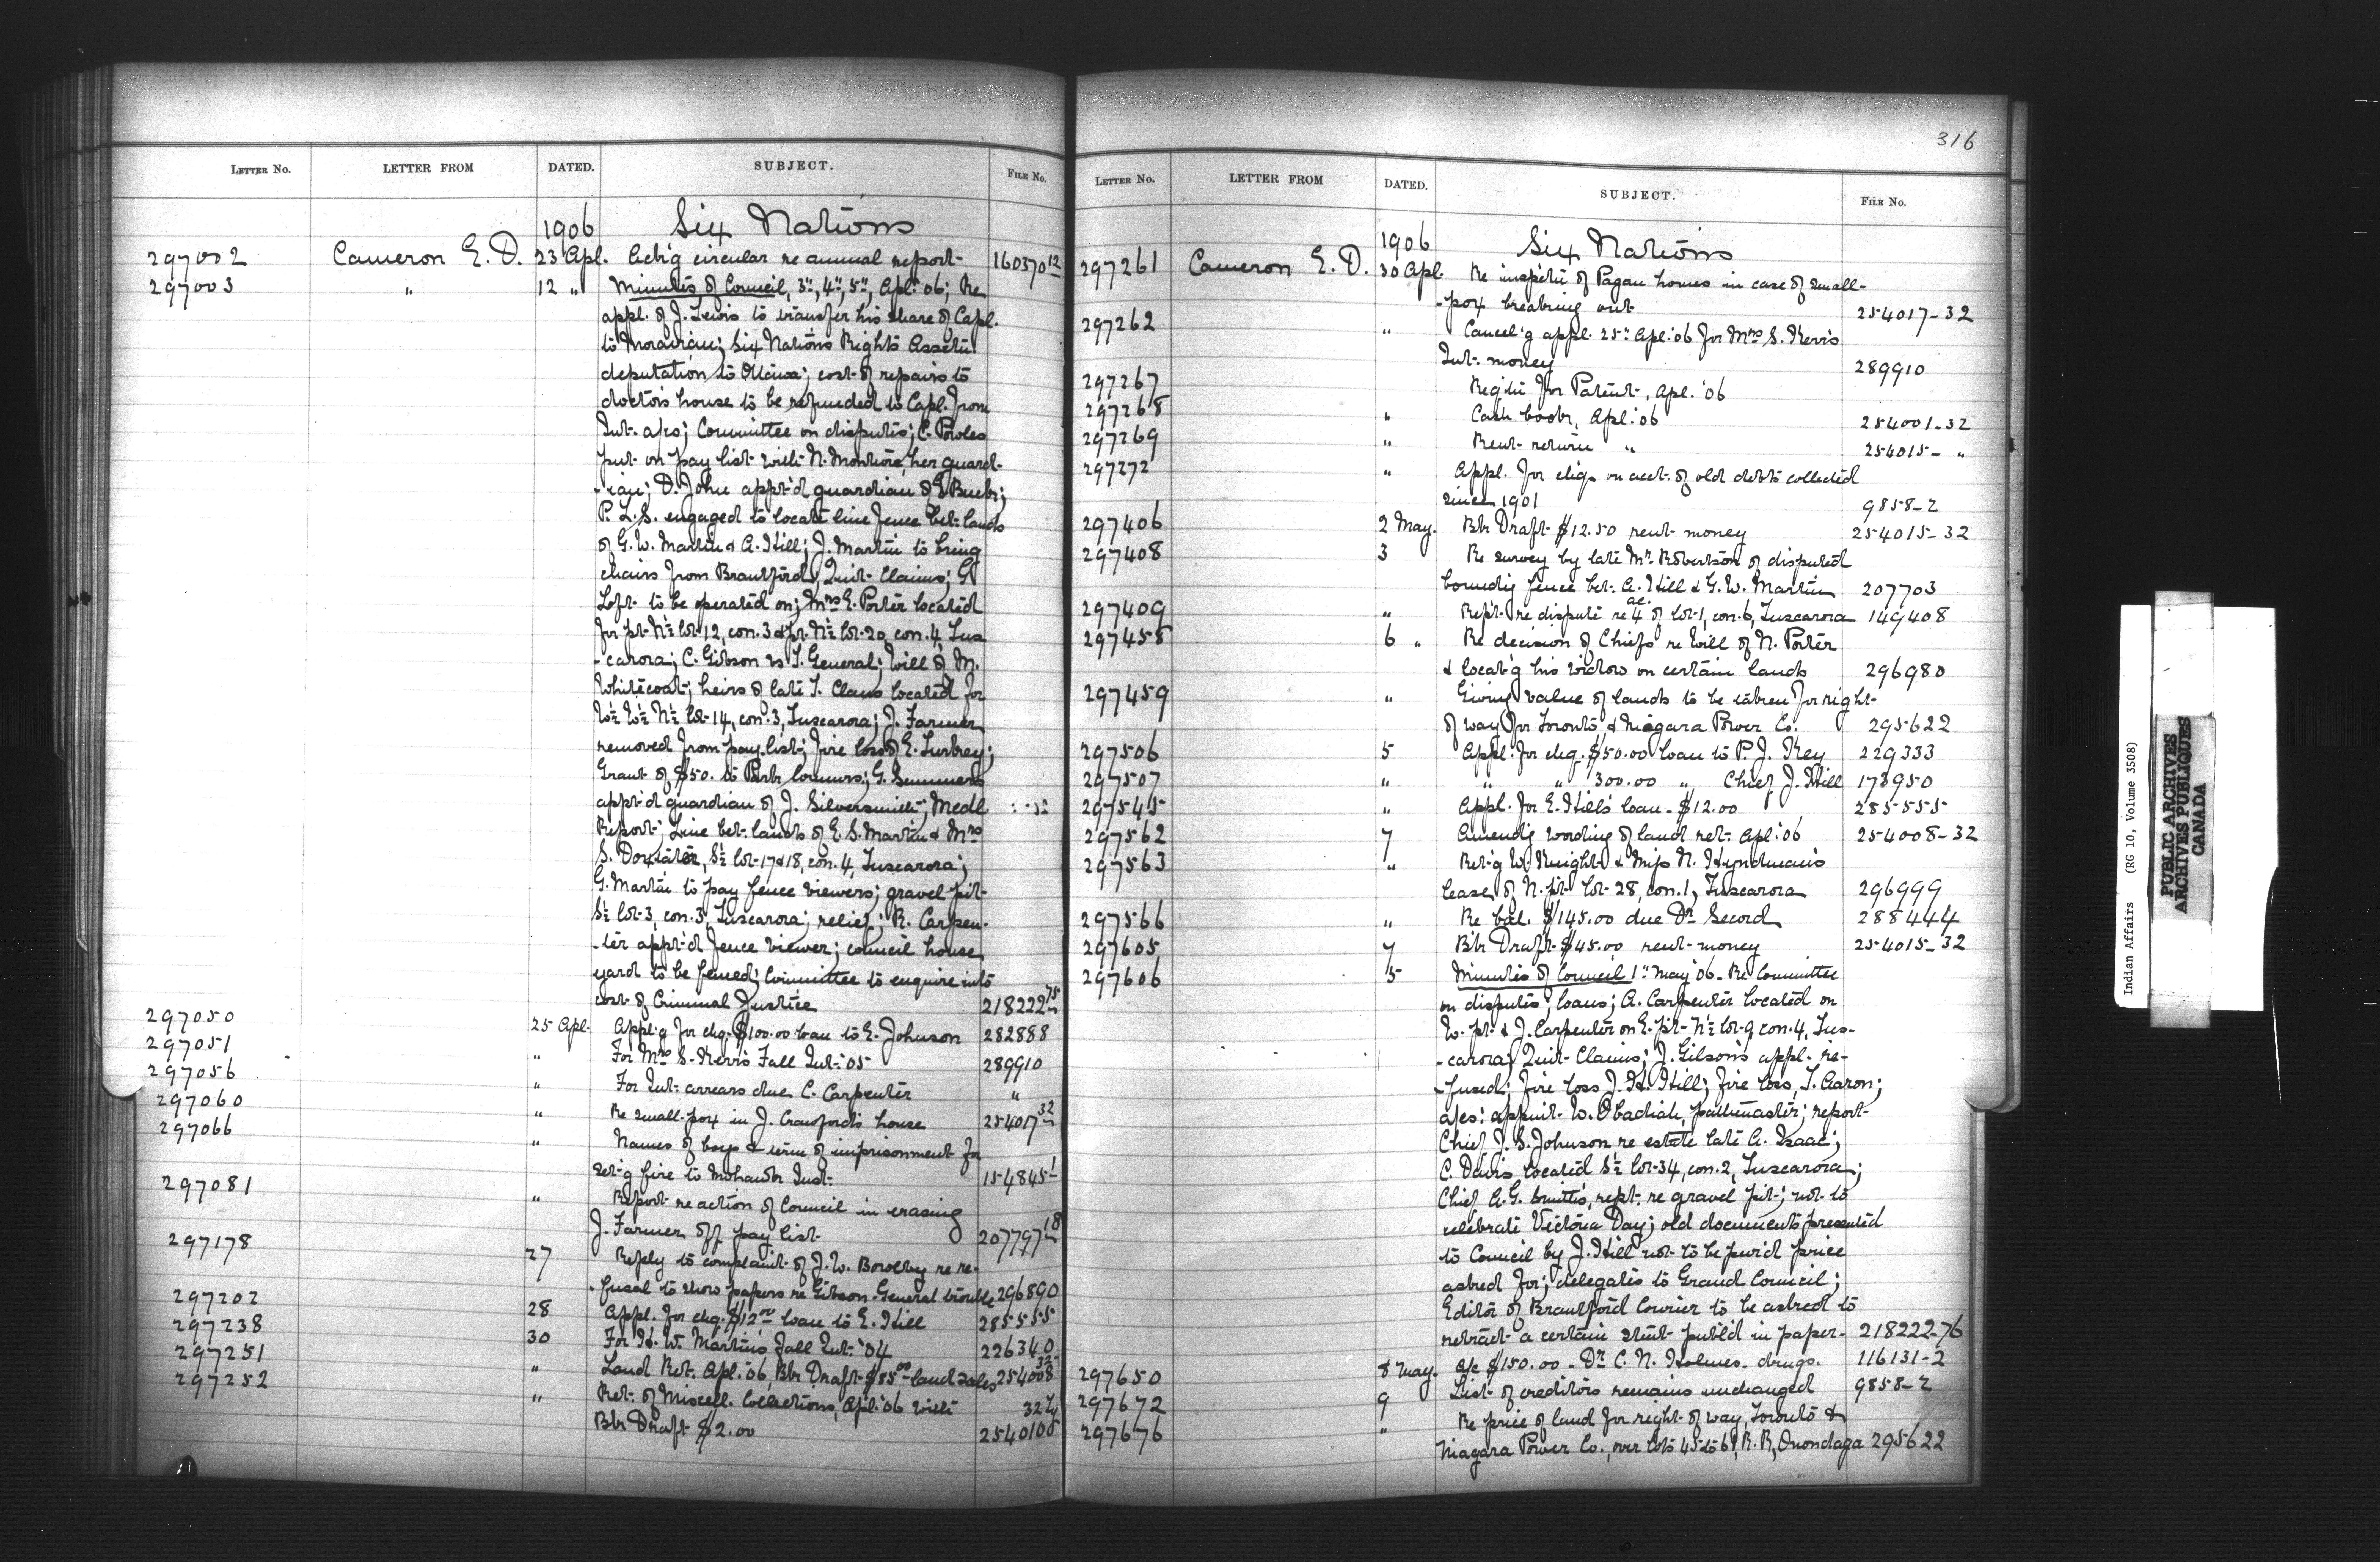 LETTER No. LETTER FROM DATED. SUBJECT. FILE No.
1906 Six Nations
297002 Cameron E. D. 23 Apl. Ack'g circular re annual report 160370 12
297003 " 12 " Minutes of Council, 3", 4", 5", Apl. '06; Re
appl. of J. Lewis to transfer his share of Capl.
to Moravian; Six Nations Rights Assoctn
deputation to Ottawa; cost of repairs to
doctor's house to be refunded to Capl. from
Int. a/cs; Committee on disputes; C. Powles
put on pay list with N. Monture, her guard-
-ian; D. John appt'd guardian of G. Buck;
P. L. S. engaged to locate line fence bet. lands
of G. W. Martin & A. Hill; J. Martin to bring
chairs from Brantford; Quit Claims; G.
Loft to be operated on; Mrs E. Porter located
for pt. N½ lot 12, con. 3 & pt. N½ lot 20, con. 4, Tus
-carora; C. Gibson vs T. General; Will of M.
Whitecoat; heirs of late T. Claus located for
W½ W½ N½ lot 14, con. 3, Tuscarora; J. Farmer
removed from pay list; fire loss of E. Turkey;
Grant of $50. to Park Commrs; G. Summers
appt'd guardian of J. Silversmith; Medl.
Report; Line bet. lands of E. S. Martin & Mrs
S. Doxtater, S½ lot 17 & 18, con. 4, Tuscarora;
G. Martin to pay fence viewers; gravel pit
S½ lot 3, con. 3, Tuscarora; relief; R. Carpen-
-ter appt'd fence viewer; council house
yard to be fenced; Committee to enquire into
cost of Criminal Justice 218222 75
297050 25 Apl. Appl'g for chq. $100.00 loan to E. Johnson 282888
297051 " For Mrs S. Kerris Fall Int. '05 289910
297056 " For Int. arrears due C. Carpenter "
297060 " Re small-pox in J. Crawford's house 254017 32
297066 " Names of boys & term of imprisonment for
set'g fire to Mohawk Inst. 154845 1
297081 " Report re action of Council in erasing
J. Farmer off pay list 207797 18
297178 27 Reply to complaint of J. W. Bowlby re re-
-fusal to show papers re Gibson-General trouble 296890
297202 28 Appl. for chq. $12.00 loan to E. Hill 285555
297238 30 For H. W. Martin's Fall Int. '04 226340
297251 " Land Ret. Apl. '06, Bk Draft $85.00 land sales 254008 32
297252 " Ret. of Miscell. Collections, Apl. '06 with
Bk Draft $2.00
316
LETTER No. LETTER FROM DATED. SUBJECT. FILE No.
1906 Six Nations
297261 Cameron E. D. 30 Apl. Re inspectn of Pagan homes in case of small-
-pox breaking out 254017-32
297262 " Cancel'g appl. 25" Apl. '06 for Mrs S. Kerris
Int. money 289910
297267 Regtn for Patent, Apl. '06
297268 " Cash book, Apl. '06 254001-32
297269 " Rent return " 254015- "
297272 " Appl. for chqs on acct. of old debts collected
since 1901 9858-2
297406 2 May. Bk Draft $12.50 rent money 254015-32
297408 3 Re survey by late Mr Robertson of disputed
boundy fence bet. A. Hill & G. W. Martin 207703
297409 " Rept. re dispute re 4 ac. of lot 1, con. 6, Tuscarora 149408
297458 6 " Re decision of Chiefs re Will of N. Porter
& locat'g his widow on certain lands 296980
297459 " Giving value of lands to be taken for right
of way for Toronto & Niagara Power Co. 295622
297506 5 Appl. for chq. $50.00 loan to P. J. Key 229333
297507 " " " 300.00 " Chief J. Hill 173950
297545 " Appl. for E. Hill's loan - $12.00 285555
297562 7 Amendg wording of land ret. Apl. '06 254008-32
297563 " Ret'g W. Knight & Miss N. Hyndman's
lease of N. pt. lot 28, con. 1, Tuscarora 296999
297566 " Re bal. $145.00 due Dr Secord 288444
297605 7 Bk Draft $45.00 rent money 254015-32
297606 5 Minutes of Council 1" May '06 - Re Committee
on disputes; loans; A. Carpenter located on
W. pt. & J. Carpenter on E. pt. N½ lot 9 con. 4, Tus-
-carora; Quit Claims; J. Gibson's appl. re-
-fused; fire loss J. H. Hill; fire loss, T. Aaron;
a/cs: appmt. W. Obadiah, pathmaster; report
Chief J. S. Johnson re estate late A. Isaac;
C. Davis located S½ lot 34, con. 2, Tuscarora;
Chief A. G. Smith's rept. re gravel pit; not to
celebrate Victoria Day; old documents presented
to Council by J. Hill not to be pur'd price
asked for; delegates to Grand Council;
Editor of Brantford Courier to be asked to
retract a certain stmt publ'd in paper - 218222-76
297650 8 May. A/c $150.00 - Dr C. N. Holmes - drugs. 116131-2
297672 9 List of creditors remains unchanged 9858-2
297676 " Re price of land for right of way, Toronto &
Niagara Power Co., over lots 45 to 61, R. R., Onondaga 295622
Indian Affairs (RG 10, Volume 3508)
PUBLIC ARCHIVES
ARCHIVES PUBLIQUES
CANADA